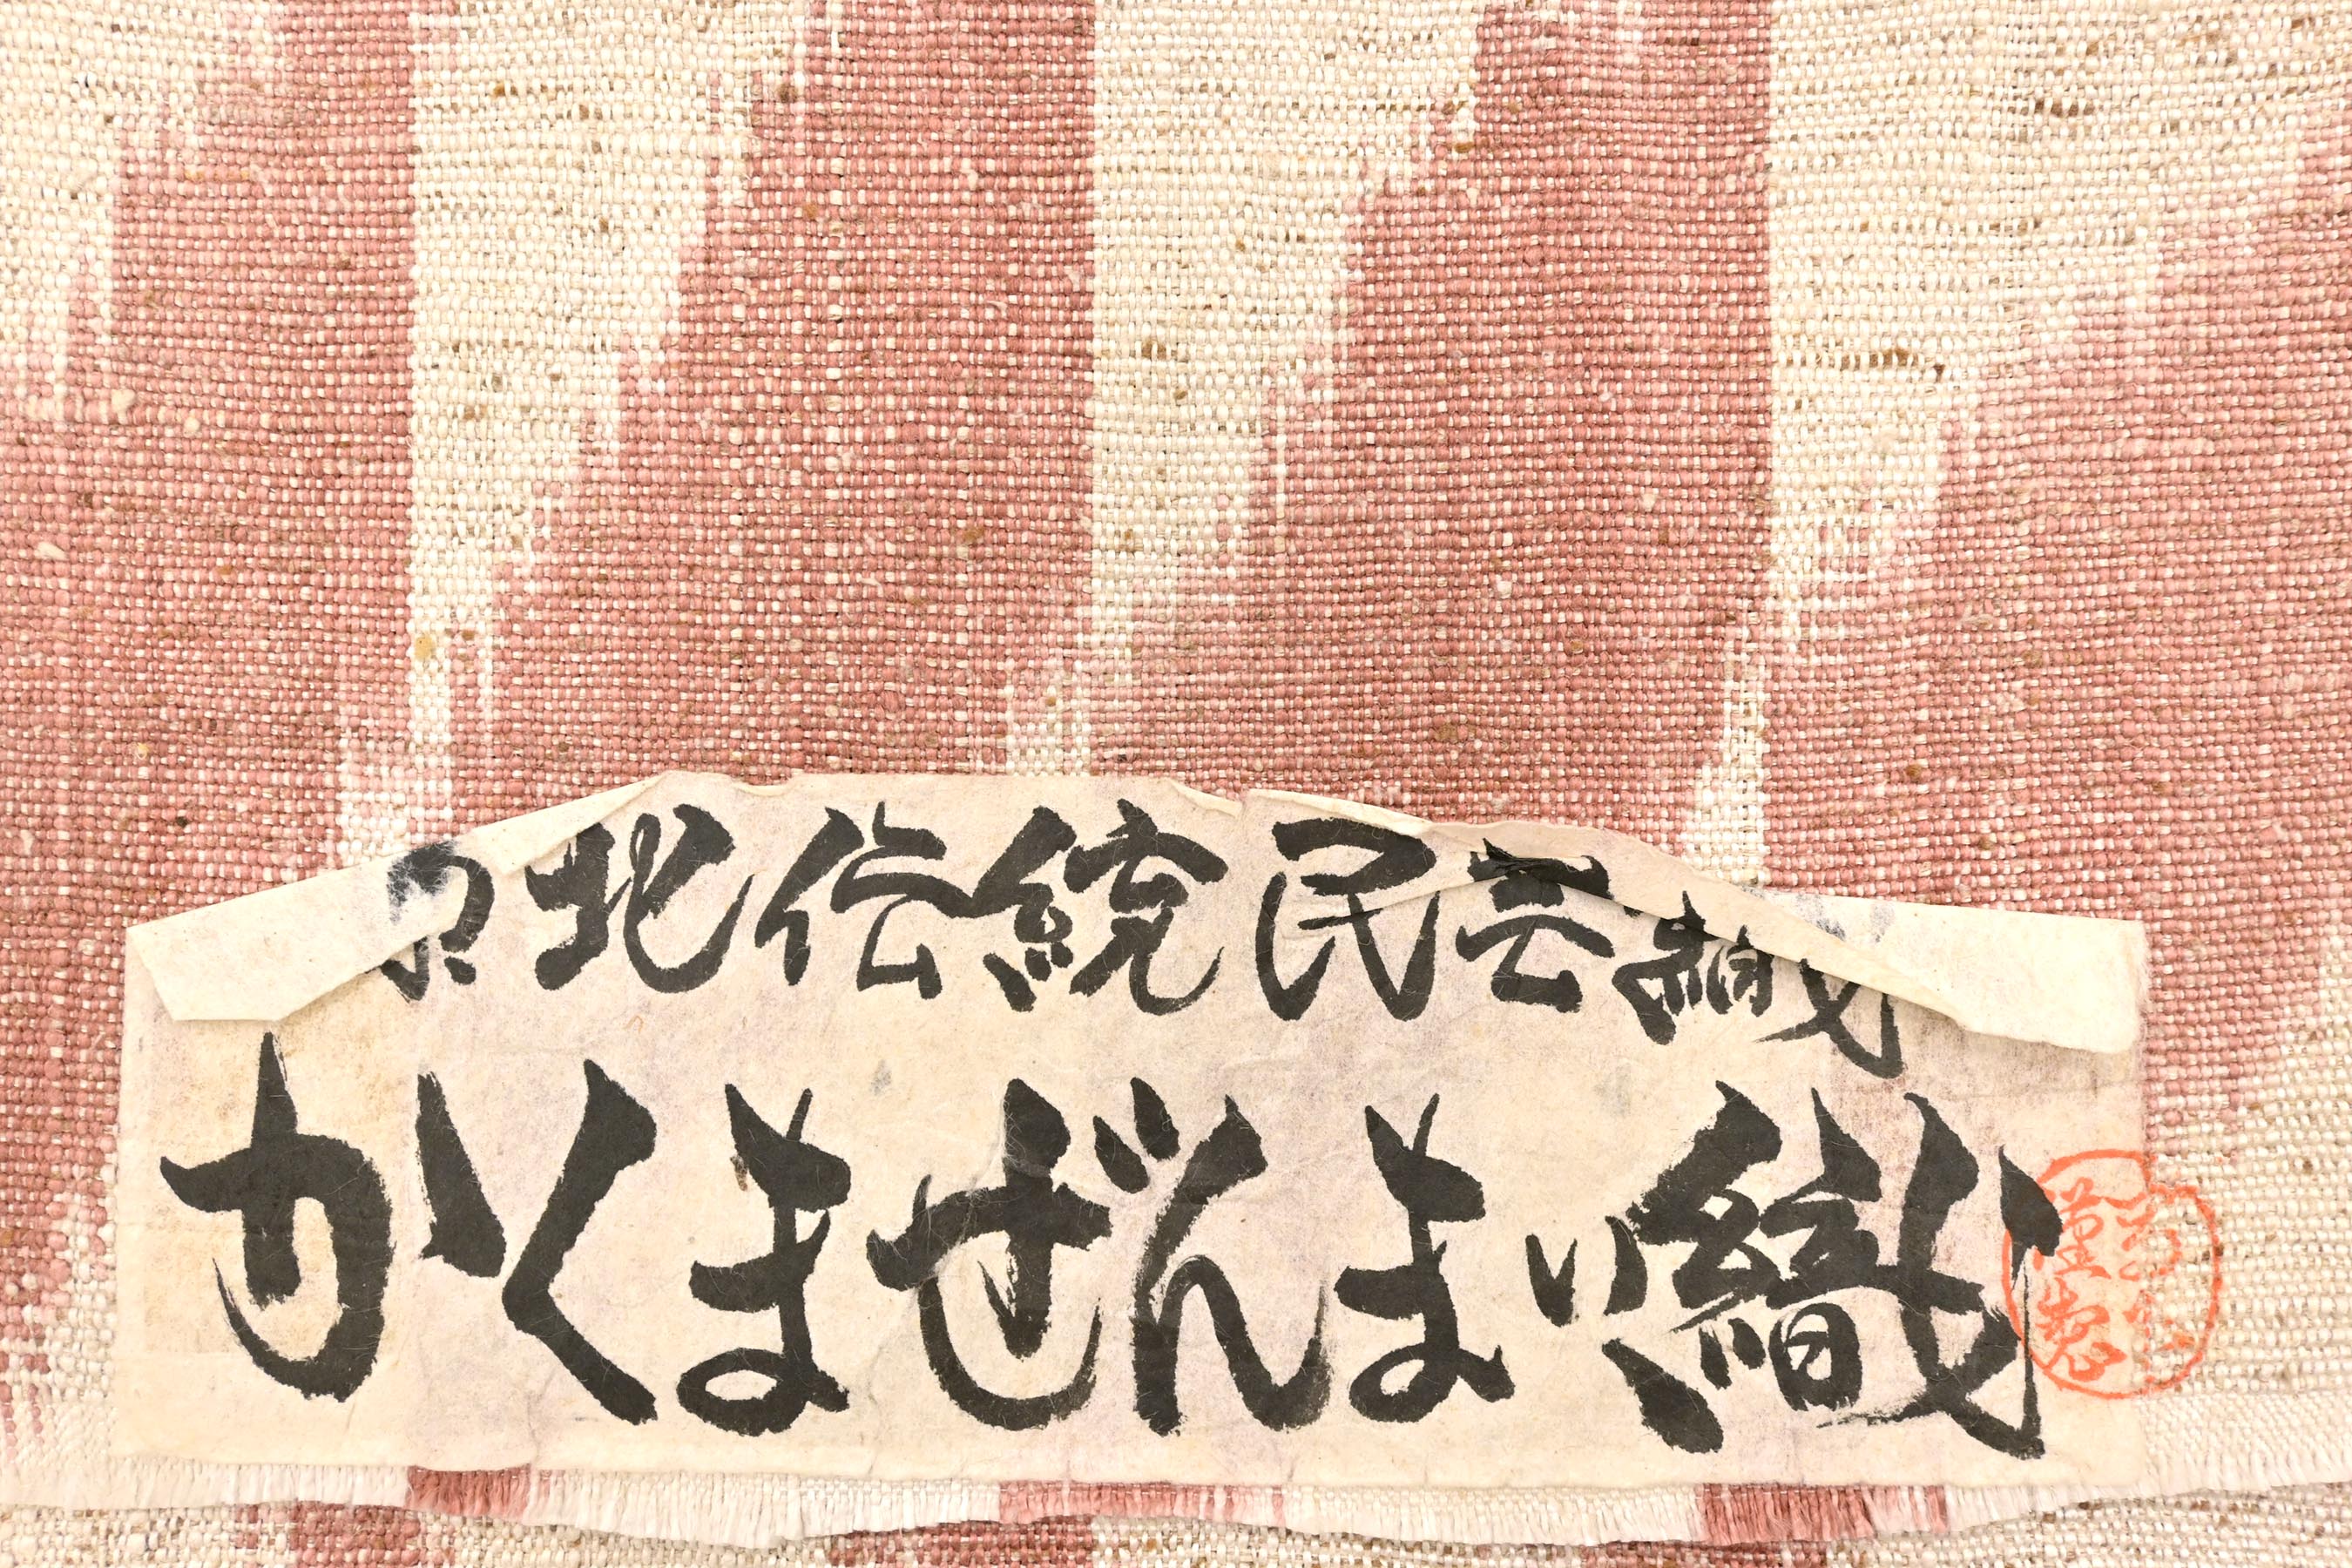 北伝統民芸織
かくまぜんまい織